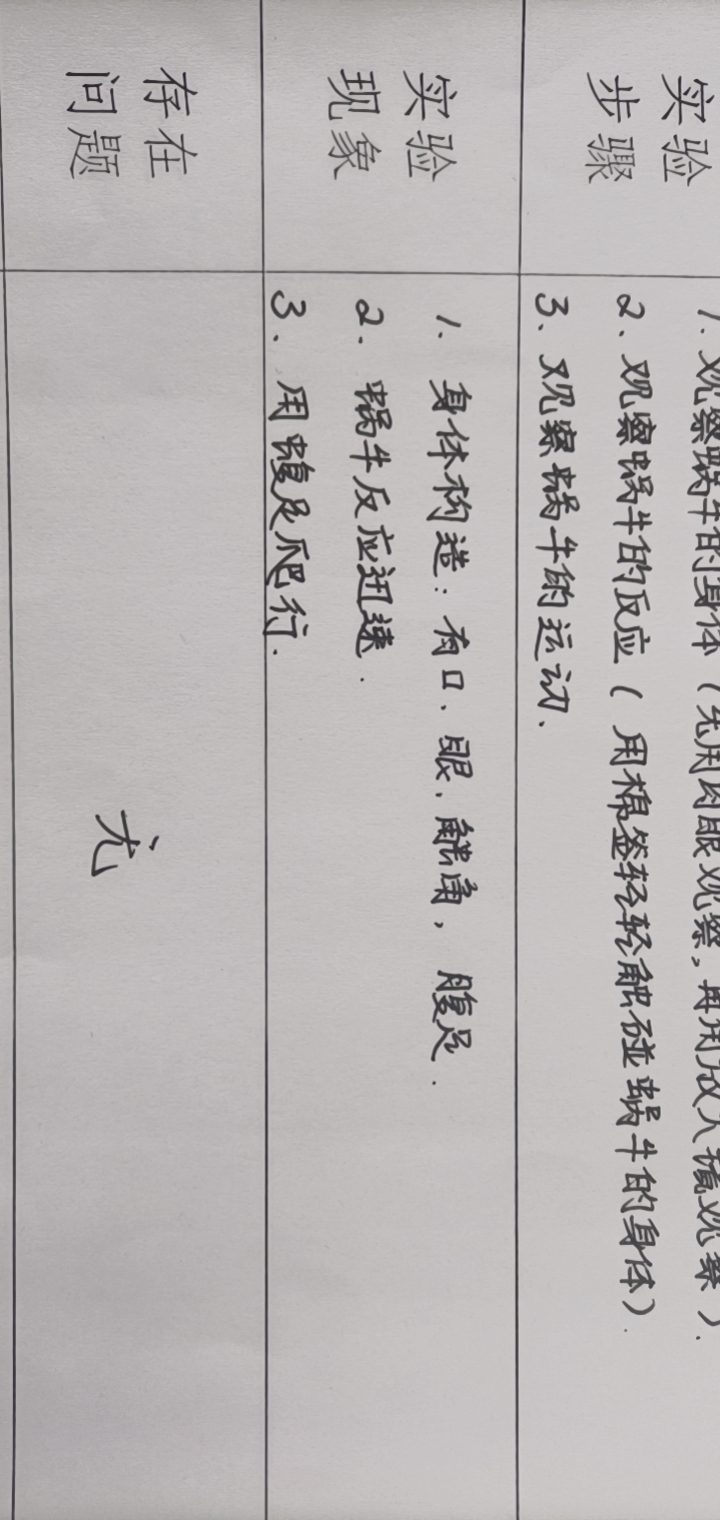 实验
步骤
1. 观察蜗牛的身体（先用肉眼观察，再用放大镜观察）.
2、观察蜗牛的反应（用棉签轻轻触碰蜗牛的身体）.
3、观察蜗牛的运动、
实验
现象
1、身体构造：有口、眼、触角，腹足.
2.蜗牛反应迅速.
3.用腹足爬行.
存在
问题
无